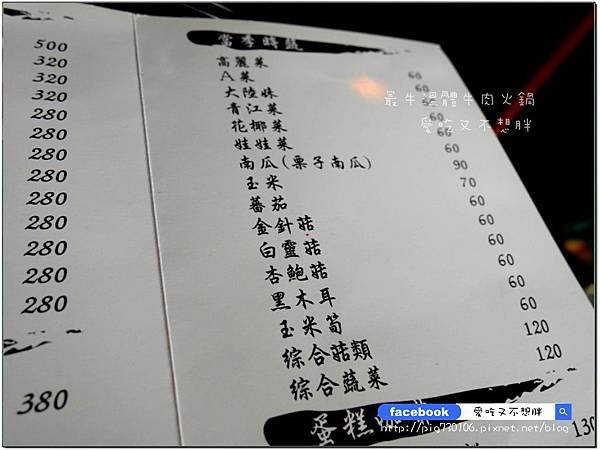 500
320
320
320
280
280
280
280
280
280
280
280
280
380
當季時蔬
高麗菜 60
A菜 60
大陸妹 60
青江菜 60
花椰菜 60
娃娃菜 60
南瓜(栗子南瓜) 90
玉米 70
蕃茄 60
金針菇 60
白靈菇 60
杏鮑菇 60
黑木耳 60
玉米筍 60
綜合菇類 120
綜合蔬菜 120
蛋糕
130
最牛溫體牛肉火鍋
愛吃又不想胖
facebook 愛吃又不想胖
http://pig730106.pixnet.net/blog